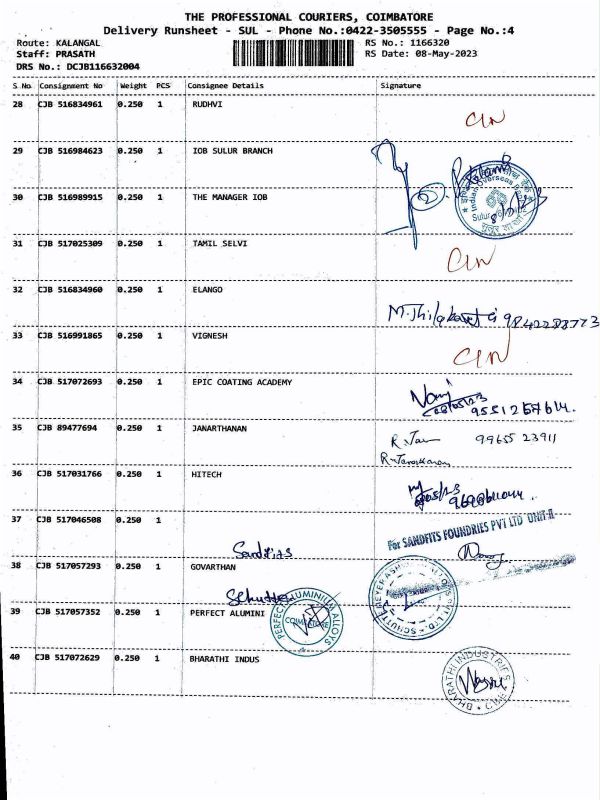 THE PROFESSIONAL COURIERS, COIMBATORE
Delivery Runsheet - SUL - Phone No.:0422-3505555 - Page No.:4
Route: KALANGAL RS No.: 1166320
Staff: PRASATH RS Date: 08-May-2023
DRS No.: DCJB116632004
S No Consignment No Weight PCS Consignee Details Signature
28 CJB 516834961 0.250 1 RUDHVI
29 CJB 516984623 0.250 1 IOB SULUR BRANCH
30 CJB 516989915 0.250 1 THE MANAGER IOB
Indian Overseas Bank
31 CJB 517025309 0.250 1 TAMIL SELVI
32 CJB 516834960 0.250 1 ELANGO
33 CJB 516991865 0.250 1 VIGNESH
34 CJB 517072693 0.250 1 EPIC COATING ACADEMY
35 CJB 89477694 0.250 1 JANARTHANAN
R. Jan 99655 23911
36 CJB 517031766 0.250 1 HITECH
37 CJB 517046508 0.250 1
Sandfits
For SANDFITS FOUNDRIES PVT LTD UNIT-II
38 CJB 517057293 0.250 1 GOVARTHAN
39 CJB 517057352 0.250 1 PERFECT ALUMINI
PERFECT ALUMINIUM ALLOYS
COIMBATORE
40 CJB 517072629 0.250 1 BHARATHI INDUS
BHARATHI INDUSTRIES